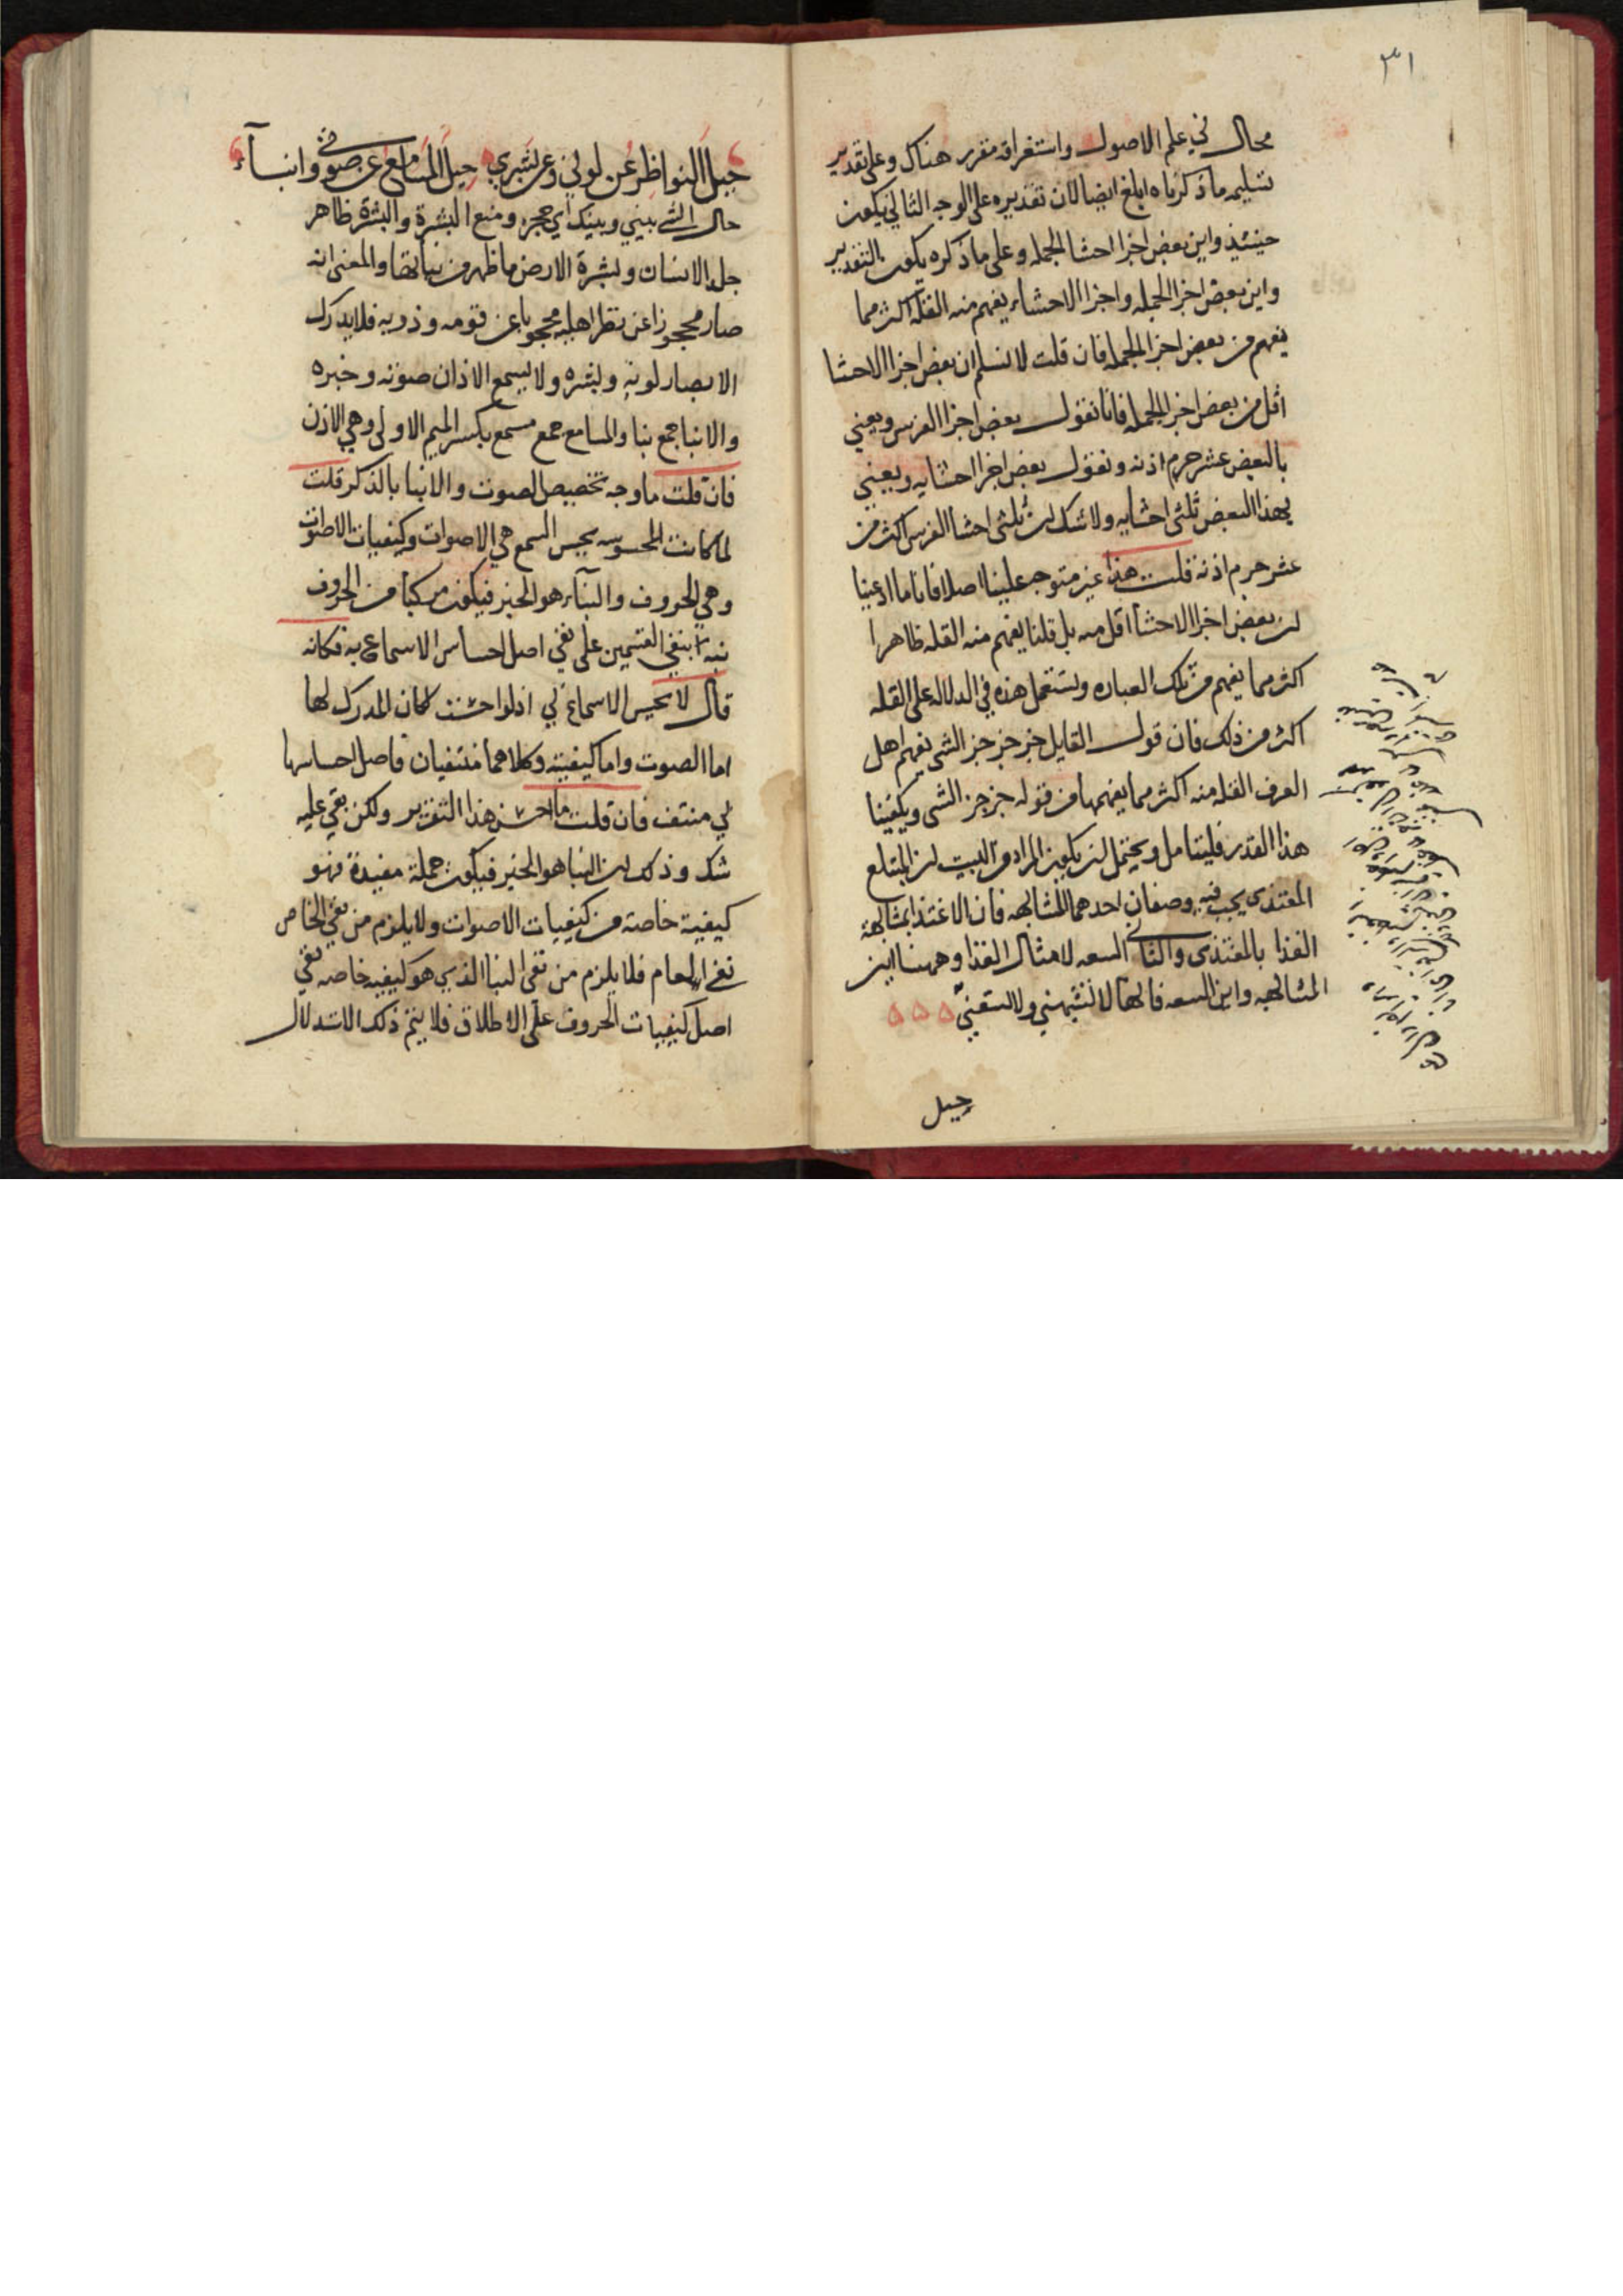 ٣١
محال في علم الاصول واستغراقه مقرر هناك وعلى تقدير
تسليمه ما ذكرناه ابلغ ايضا لان تقديره على الوجه الثاني يكون
حينئذ واين بعض اجزا احشا الجمله وعلى ما ذكره يكون التقدير
واين بعض اجزا الجمله واجزا الاحشاء يفهم منه القله اكثر مما
يفهم من بعض اجزا الجمله فان قلت لا نسلم ان بعض اجزا الاحشا
اقل من بعض اجزا الجمله فانا نقول بعض اجزا الفرس ويعني
بالبعض عشر جرم اذنه ونقول بعض اجزا احشايه ويعني
بهذا البعض ثلثي احشايه ولا شك ان ثلثي احشا الفرس اكثر من
عشر جرم اذنه قلت هذا غير متوجه علينا اصلا فانا ما ادعينا
ان بعض اجزا الاحشا اقل منه بل قلنا يفهم منه القله ظاهرا
اكثر مما يفهم من تلك العباره وتستعمل هذه في الدلاله على القله
اكثر من ذلك فان قول القايل جز جز جز الشي يفهم اهل
العرف القله منه اكثر مما يفهمها من قوله جز جز الشي ويكفينا
هذا القدر فليتامل ويحتمل ان يكون المراد من البيت ان المبتلع
المغتذي يجب فيه وصفان احدهما المشابهه فان الاغتذا بمشابهة
الغذا بالمغتذي والثاني السعه لامثال الغذا وههنا اين
المشابهه واين السعه فانها لا تشبهني ولا تسعني
حيل
حيل النواظر عن لوني وعن بشري حيل المسامع عن صوتي وانباء
حال الشي بيني وبينك اي حجز ومنع البشرة والبشرة ظاهر
جلد الانسان وبشرة الارض ما ظهر من نباتها والمعنى انه
صار محجوزا عن نظر اهله محجوبا عن قومه وذويه فلا يدرك
الابصار لونه وبشره ولا يسمع الاذان صوته وخبره
والانبا جمع نبا والمسامع جمع مسمع بكسر الميم الاولى وهي الاذن
فان قلت ما وجه تخصيص الصوت والانبا بالذكر قلت
لما كانت المحسوسه بحس السمع هي الاصوات وكيفيات الاصوات
وهي الحروف والنباء هو الخبر فيكون مركبا من الحروف
نبه بنفي القسمين على نفي اصل احساس الاسماع به فكانه
قال لا تحس الاسماع بي اذ لو احست لكان المدرك لها
اما الصوت واما كيفيته وكلاهما منتفيان فاصل احساسها
بي منتف فان قلت ما احسن هذا التقرير ولكن بقي عليه
شك وذلك ان النبا هو الخبر فيكون جملة مفيدة فهو
كيفية خاصة من كيفيات الاصوات ولا يلزم من نفي الخاص
نفي العام فلا يلزم من نفي النبا الذي هو كيفيه خاصه نفي
اصل كيفيات الحروف على الاطلاق فلا يتم ذلك الاستدلال